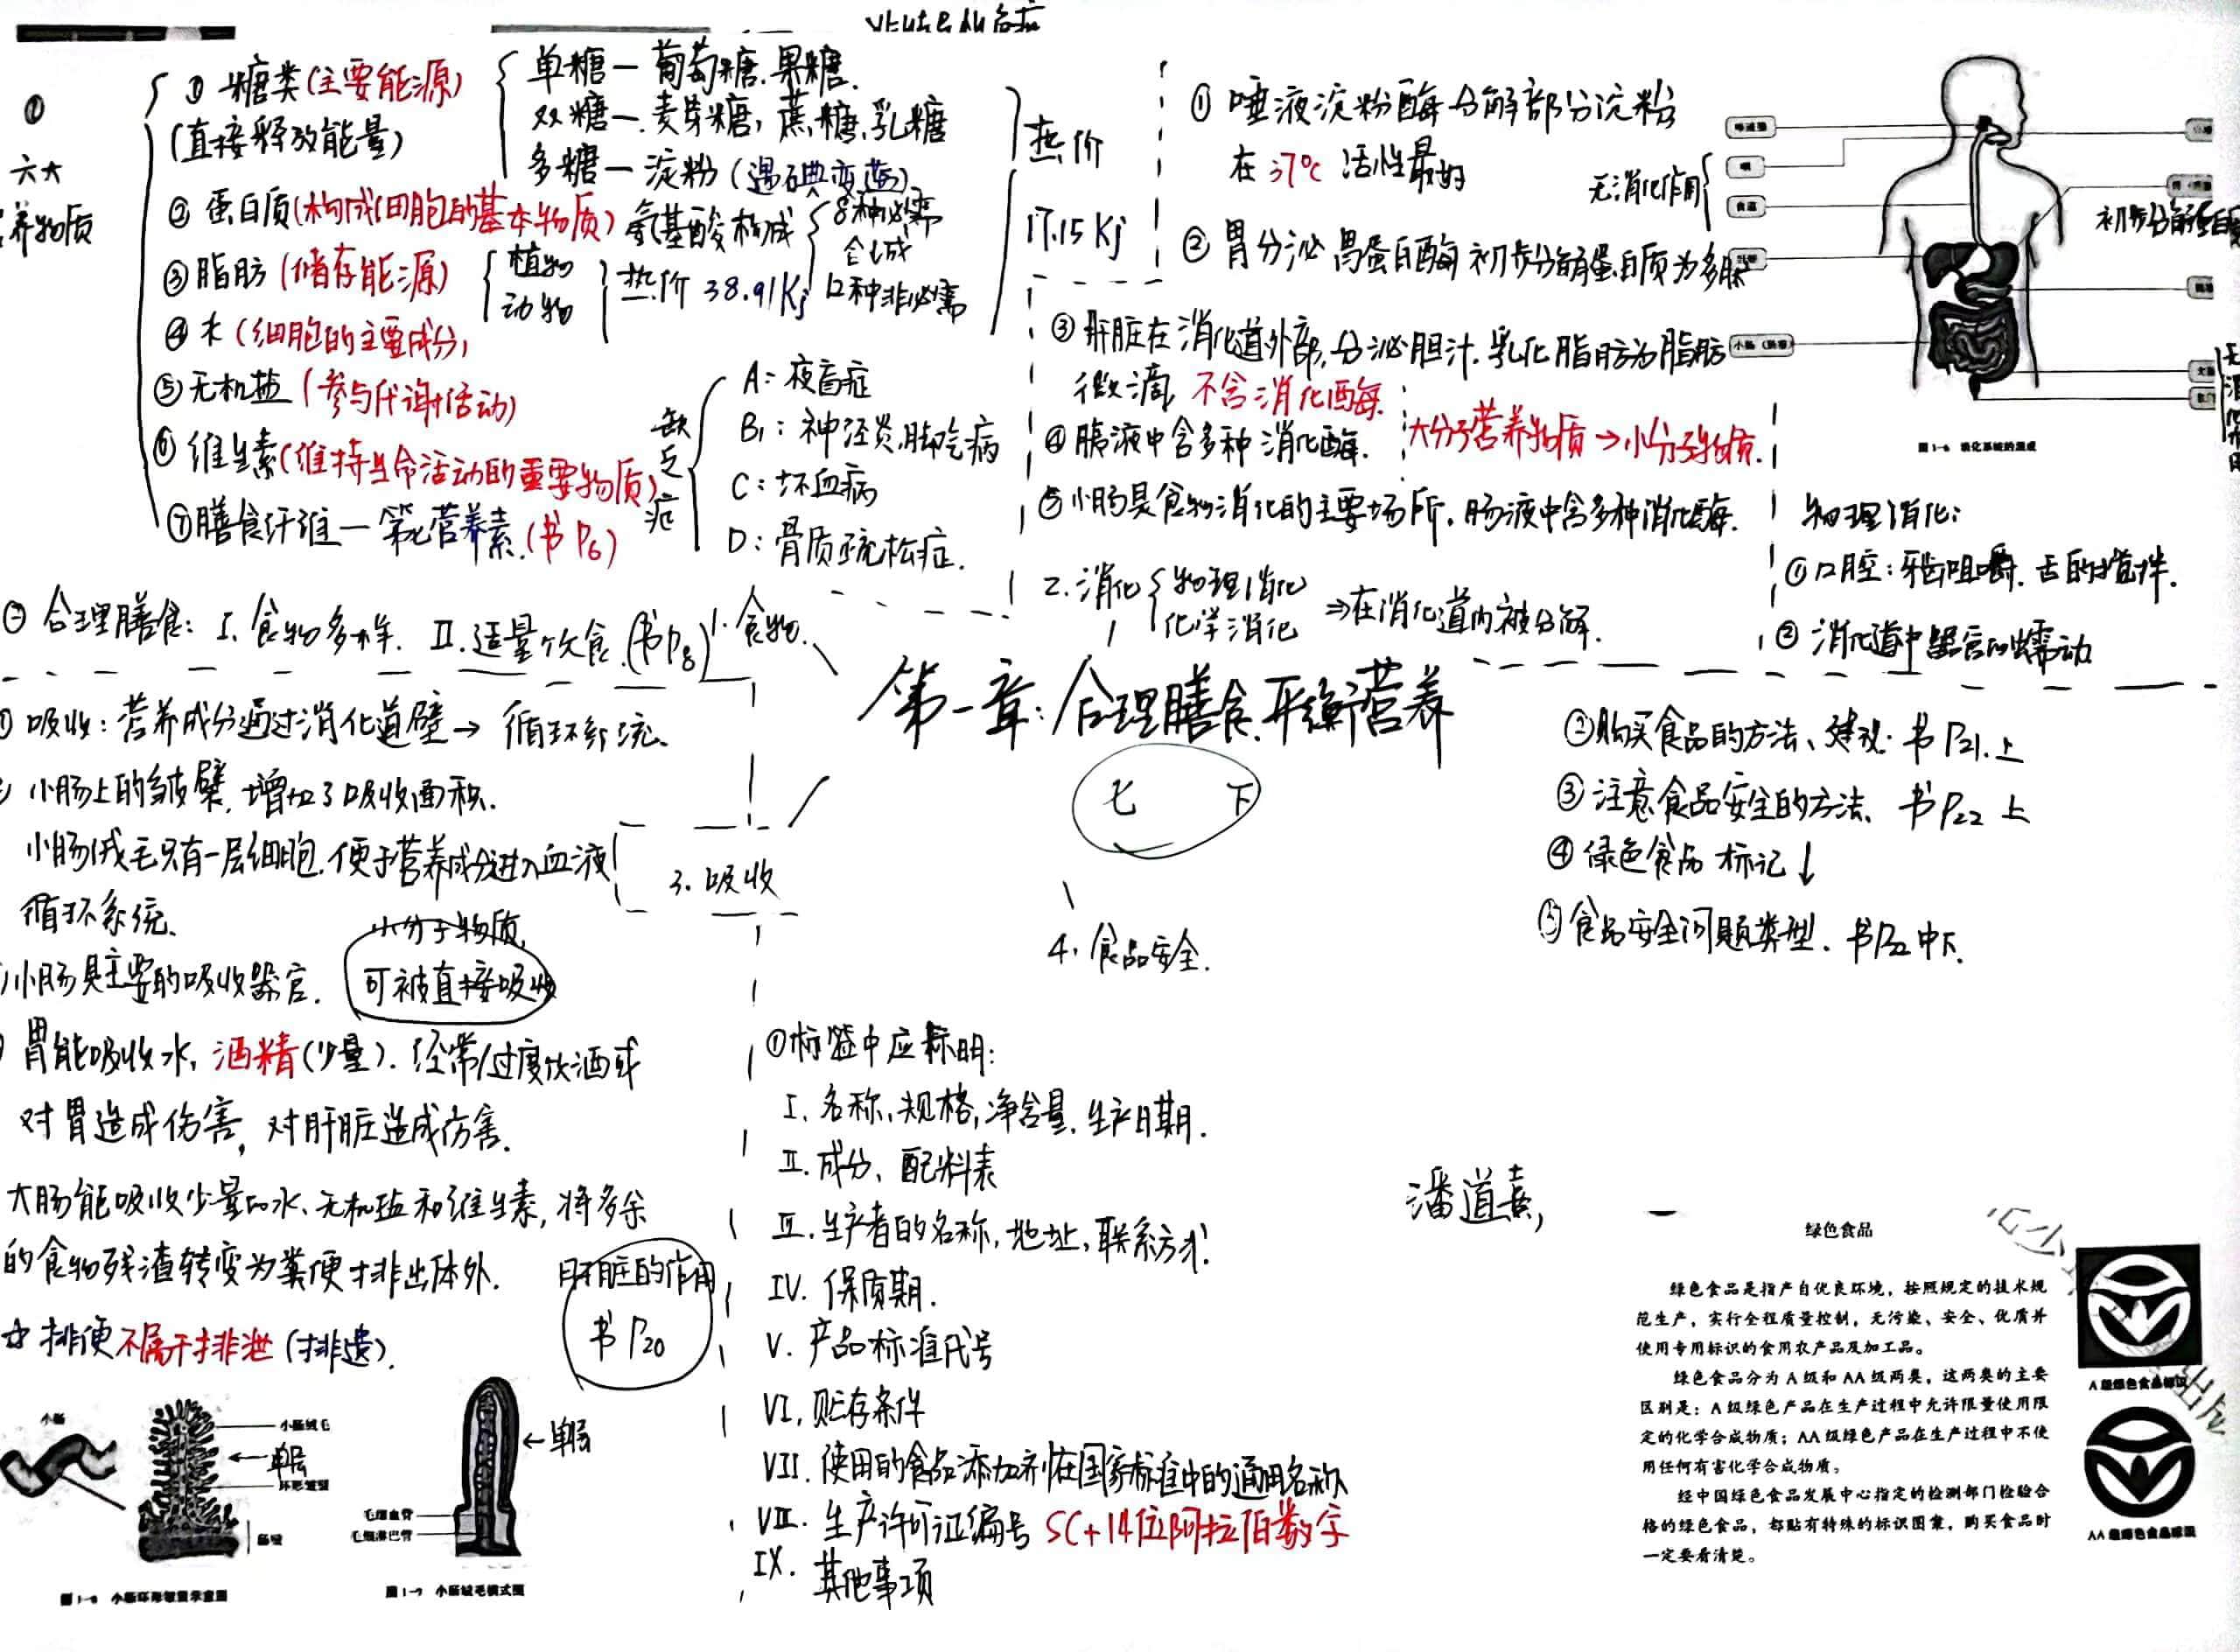 ①
六大
营养物质
① 糖类(主要能源)
(直接释放能量)
单糖一葡萄糖.果糖.
双糖一.麦芽糖,蔗糖,乳糖
多糖一淀粉(遇碘变蓝)
② 蛋白质(构成细胞的基本物质)氨基酸构成
8种必需
合成
12种非必需
热价
17.15 Kj
③ 脂肪 (储存能源)
植物
动物
热价 38.91Kj
④ 水(细胞的主要成分)
⑤ 无机盐 (参与代谢活动)
⑥ 维生素(维持生命活动的重要物质)
缺乏症
A: 夜盲症
B₁: 神经炎,脚气病
C: 坏血病
D: 骨质疏松症.
⑦膳食纤维一第七营养素.(书P6)
② 合理膳食: I. 食物多样. II.适量饮食.(书P8)
1. 食物.
① 唾液淀粉酶分解部分淀粉
在37℃ 活性最好
② 胃分泌胃蛋白酶初步分解蛋白质为多肽
③ 肝脏在消化道外部,分泌胆汁.乳化脂肪为脂肪
微滴, 不含消化酶.
④ 胰液中含多种消化酶.
大分子营养物质→小分子物质.
⑤ 小肠是食物消化的主要场所,肠液中含多种消化酶.
2. 消化
物理消化
化学消化
⇒在消化道内被分解.
无消化作用
初步分解蛋白
小肠
图1-6 消化系统的组成
物理消化:
①口腔:牙齿咀嚼.舌的搅拌.
② 消化道中器官的蠕动
第一章:合理膳食.平衡营养
七 下
① 吸收:营养成分通过消化道壁→ 循环系统.
小肠上的皱襞,增加了吸收面积.
小肠绒毛只有一层细胞.便于营养成分进入血液
循环系统.
小肠是主要的吸收器官.
小分子物质,
可被直接吸收
胃能吸收水,酒精(少量).经常/过度饮酒或
对胃造成伤害,对肝脏造成伤害.
大肠能吸收少量的水、无机盐和维生素,将多余
的食物残渣转变为粪便才排出体外.
☆ 排便不属于排泄(排遗).
肝脏的作用
书P20
3. 吸收
小肠
小肠绒毛
←单层
环形皱襞
肠壁
图1-8 小肠环形皱襞示意图
←单层
毛细血管
毛细淋巴管
图1-9 小肠绒毛模式图
4. 食品安全.
①标签中应标明:
I. 名称,规格,净含量,生产日期.
II.成分、配料表
III.生产者的名称,地址,联系方式.
IV. 保质期.
V. 产品标准代号
VI. 贮存条件
VII. 使用的食品添加剂在国家标准中的通用名称
VII. 生产许可证编号 SC+14位阿拉伯数字
IX. 其他事项
②购买食品的方法、建议. 书P21.上
③注意食品安全的方法. 书P22 上
④ 绿色食品 标记↓
⑤食品安全问题类型. 书P22中下.
潘道熹,
绿色食品
绿色食品是指产自优良环境,按照规定的技术规
范生产,实行全程质量控制,无污染、安全、优质并
使用专用标识的食用农产品及加工品。
绿色食品分为A级和AA级两类,这两类的主要
区别是:A级绿色产品在生产过程中允许限量使用限
定的化学合成物质;AA级绿色产品在生产过程中不使
用任何有害化学合成物质。
经中国绿色食品发展中心指定的检测部门检验合
格的绿色食品,都贴有特殊的标识图案,购买食品时
一定要看清楚。
A级绿色食品标识
AA级绿色食品标识